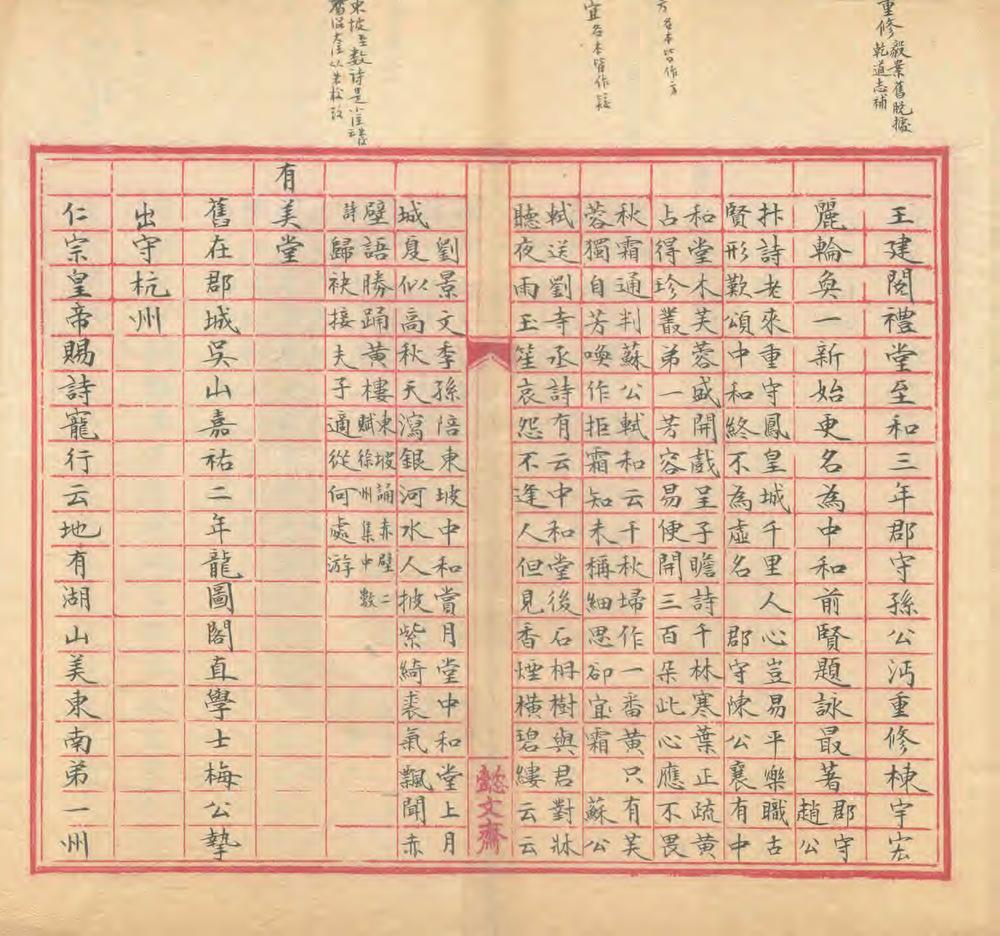 重修毅業舊脫據
乾道志補
方各本皆作方
宜各本皆作疑
東坡至數詩是小注
舊誤大注以朱校改
王建閣禮堂至和三年郡守孫公沔重修棟宇宏
麗輪奐一新始更名為中和前賢題詠最著郡守
趙公
抃詩老來重守鳳皇城千里人心豈易平樂職古
賢形歎頌中和終不為虛名 郡守陳公襄有中
和堂木芙蓉盛開戲呈子瞻詩千林寒葉正疏黃
占得珍叢弟一芳容易便開三百朵此心應不畏
秋霜通判蘇公軾和云千秋埽作一番黃只有芙
蓉獨自芳喚作拒霜知未稱細思卻宜霜 蘇公
軾送劉寺丞詩有云中和堂後石枏樹與君對牀
聽夜雨玉笙哀怨不逢人但見香煙橫碧縷云云
懿文齋
劉景文季孫陪東坡中和賞月堂中和堂上月
城夏似高秋天瀉銀河水人披紫綺裘氣飄聞赤
壁語勝踊黃樓東坡誦赤壁二
賦徐州集中數
詩歸袂接夫子適從何處游
有美堂
舊在郡城吳山嘉祐二年龍圖閣直學士梅公摯
出守杭州
仁宗皇帝賜詩寵行云地有湖山美東南弟一州